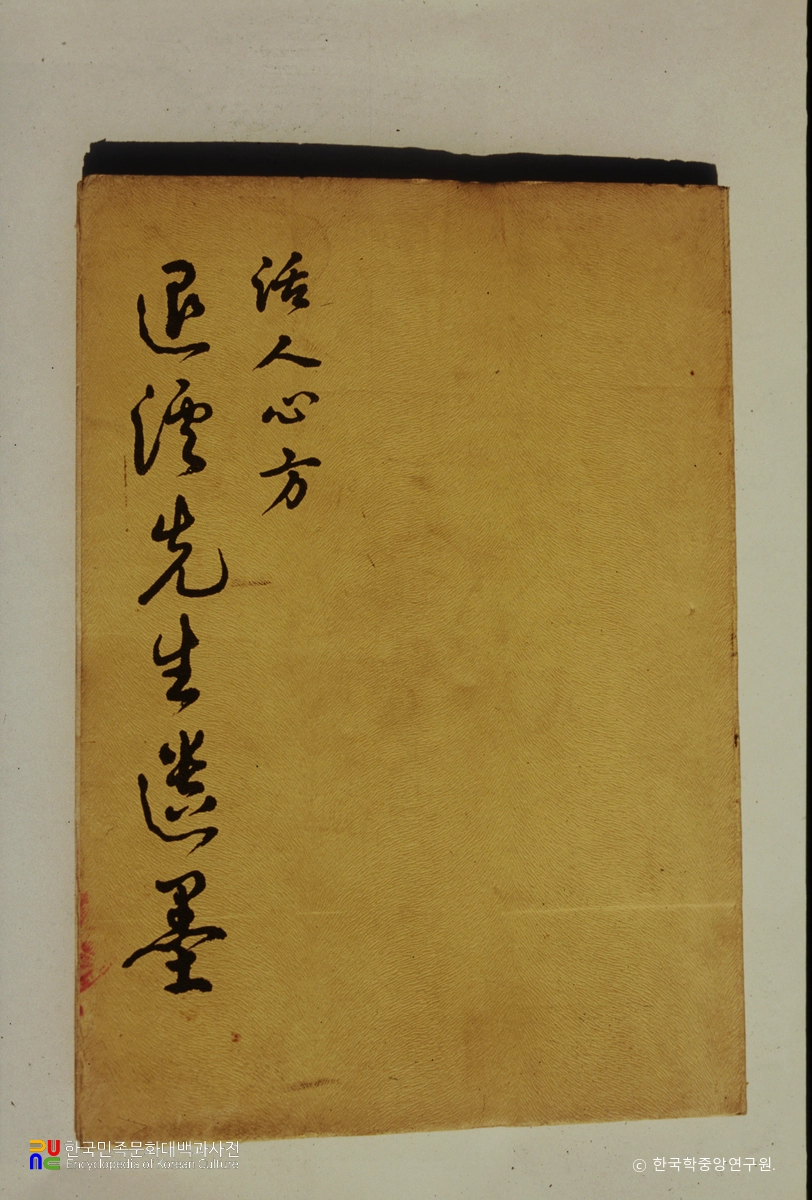 活人心方
退溪先生遺墨
한국민족문화대백과사전
Encyclopedia of Korean Culture
ⓒ 한국학중앙연구원.